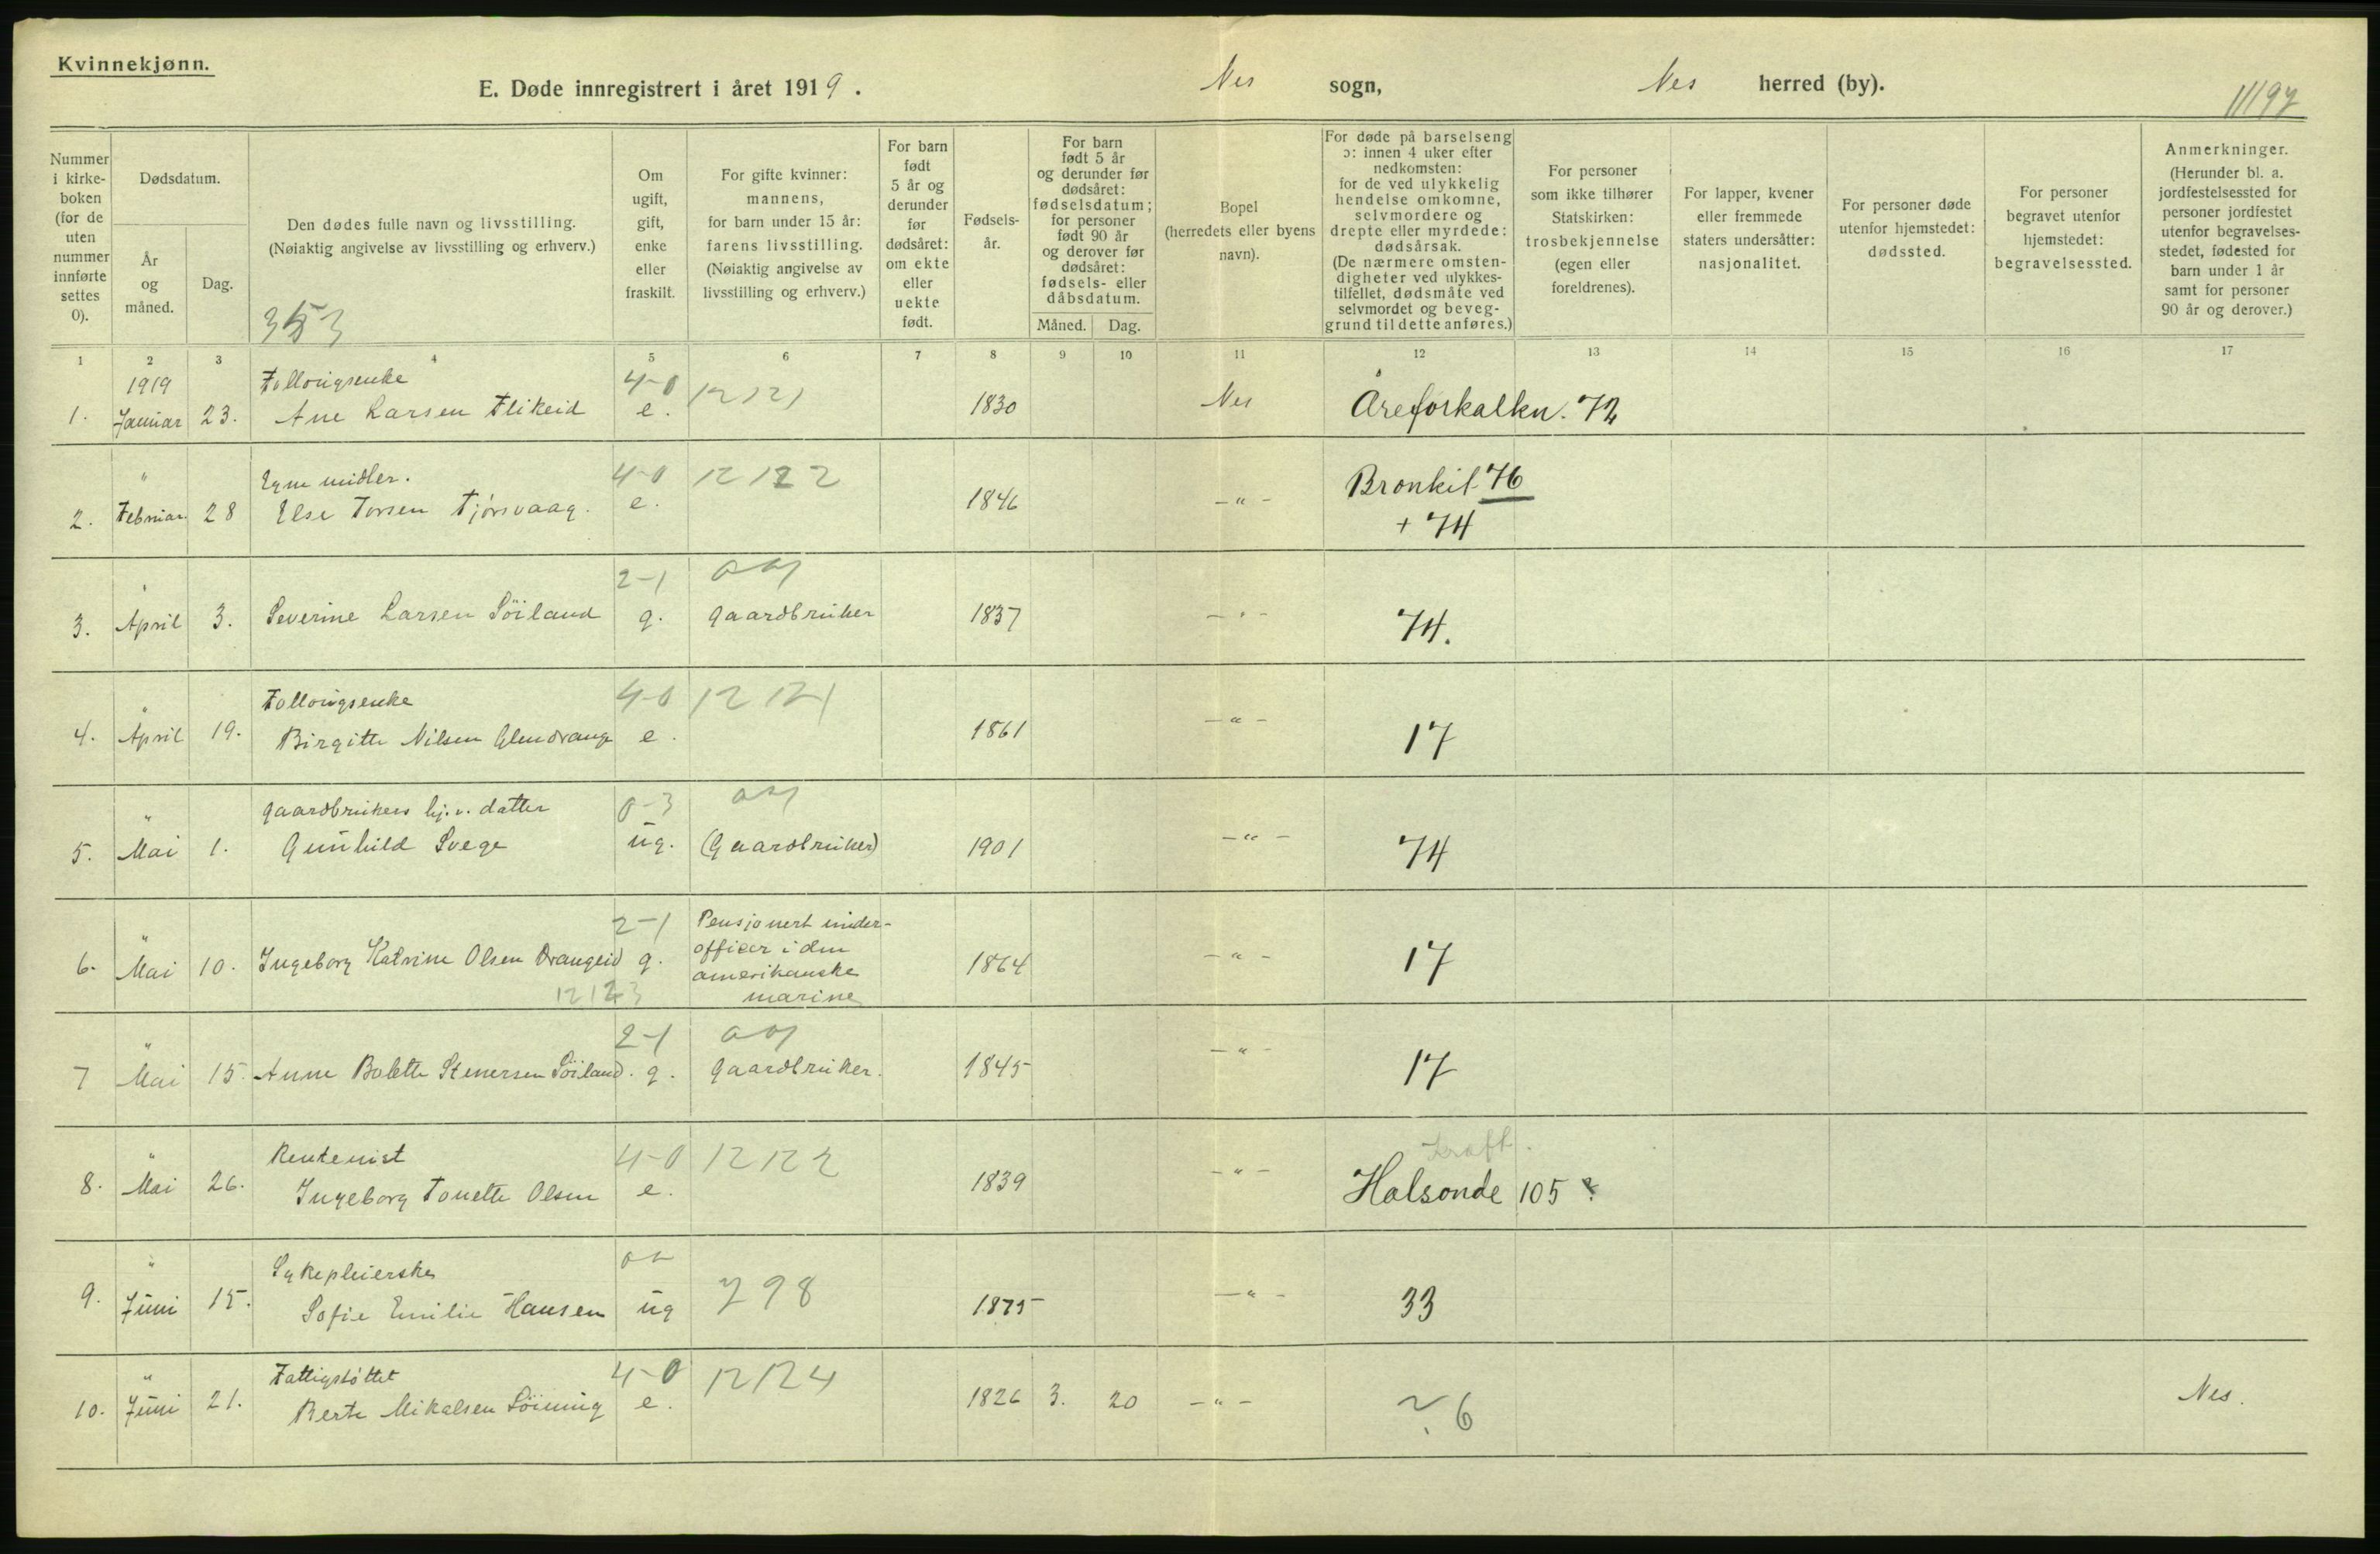 Kvinnekjønn.
E. Døde innregistrert i året 1919. Nes sogn, Nes herred (by).
Nummer i kirke-boken (for de uten nummer innførte settes 0).
Dødsdatum.
År og måned.
Dag.
Den dødes fulle navn og livsstilling.
(Nøiaktig angivelse av livsstilling og erhverv.)
353
Om ugift, gift, enke eller fraskilt.
For gifte kvinner: mannens, for barn under 15 år: farens livsstilling. (Nøiaktig angivelse av livsstilling og erhverv.)
For barn født 5 år og derunder før dødsåret: om ekte eller uekte født.
Fødsels-år.
For barn født 5 år og derunder før dødsåret: fødselsdatum; for personer født 90 år og derover før dødsåret: fødsels- eller dåbsdatum.
Måned. Dag.
Bopel (herredets eller byens navn).
For døde på barselseng ɔ: innen 4 uker efter nedkomsten: for de ved ulykkelig hendelse omkomne, selvmordere og drepte eller myrdede: dødsårsak. (De nærmere omsten-digheter ved ulykkes-tilfellet, dødsmåte ved selvmordet og beveg-grund til dette anføres.)
For personer som ikke tilhører Statskirken: trosbekjennelse (egen eller foreldrenes).
For lapper, kvener eller fremmede staters undersåtter: nasjonalitet.
For personer døde utenfor hjemstedet: dødssted.
For personer begravet utenfor hjemstedet: begravelsessted.
Anmerkninger. (Herunder bl. a. jordfestelsessted for personer jordfestet utenfor begravelses-stedet, fødested for barn under 1 år samt for personer 90 år og derover.)
1 2 3 4 5 6 7 8 9 10 11 12 13 14 15 16 17
1919 Føllougsenke 4-0 12121
1. Januar 23. Ane Larsen Flikeid e. 1830 Nes Åreforkalkn. 72
" Egne midler. 4-0 12122
2. Februar 28 Else Torsen Tjørsvaag. e. 1846 -"- Bronkit 76
+ 74
2-1
3. April 3. Severine Larsen Söiland g. gaardbruker 1837 -"- 74.
" Føllougsenke 4-0 12121
4. April 19. Birgitte Nilsen Glendrange e. 1861 -"- 17
" gaardbrukers hj.v. datter 0-3
5. Mai 1. Gunhild Svege ug. (Gaardbruker) 1901 -"- 74
" 2-1 Pensjonert under-
officer i den
6. Mai 10. Ingeborg Katrine Olsen Drangeid g. amerikanske 1864 -"- 17
12123 marine
" 2-1
7 Mai 15. Anne Bolette Stenersen Söiland. g. gaardbruker. 1845 -"- 17
" Rentenist 4-0 12122 kraft.
8. Mai 26. Ingeborg Tonette Olsen e. 1839 -"- Halsonde 105 ?
" Sykepleierske
9. Juni 15. Sofie Emilie Hansen ug 798 1875 -"- 33
" Fattigstøttet 4-0 12124
10. Juni 21. Berte Mikalsen Löining e. 1826 3. 20 -"- ? 6 Nes.